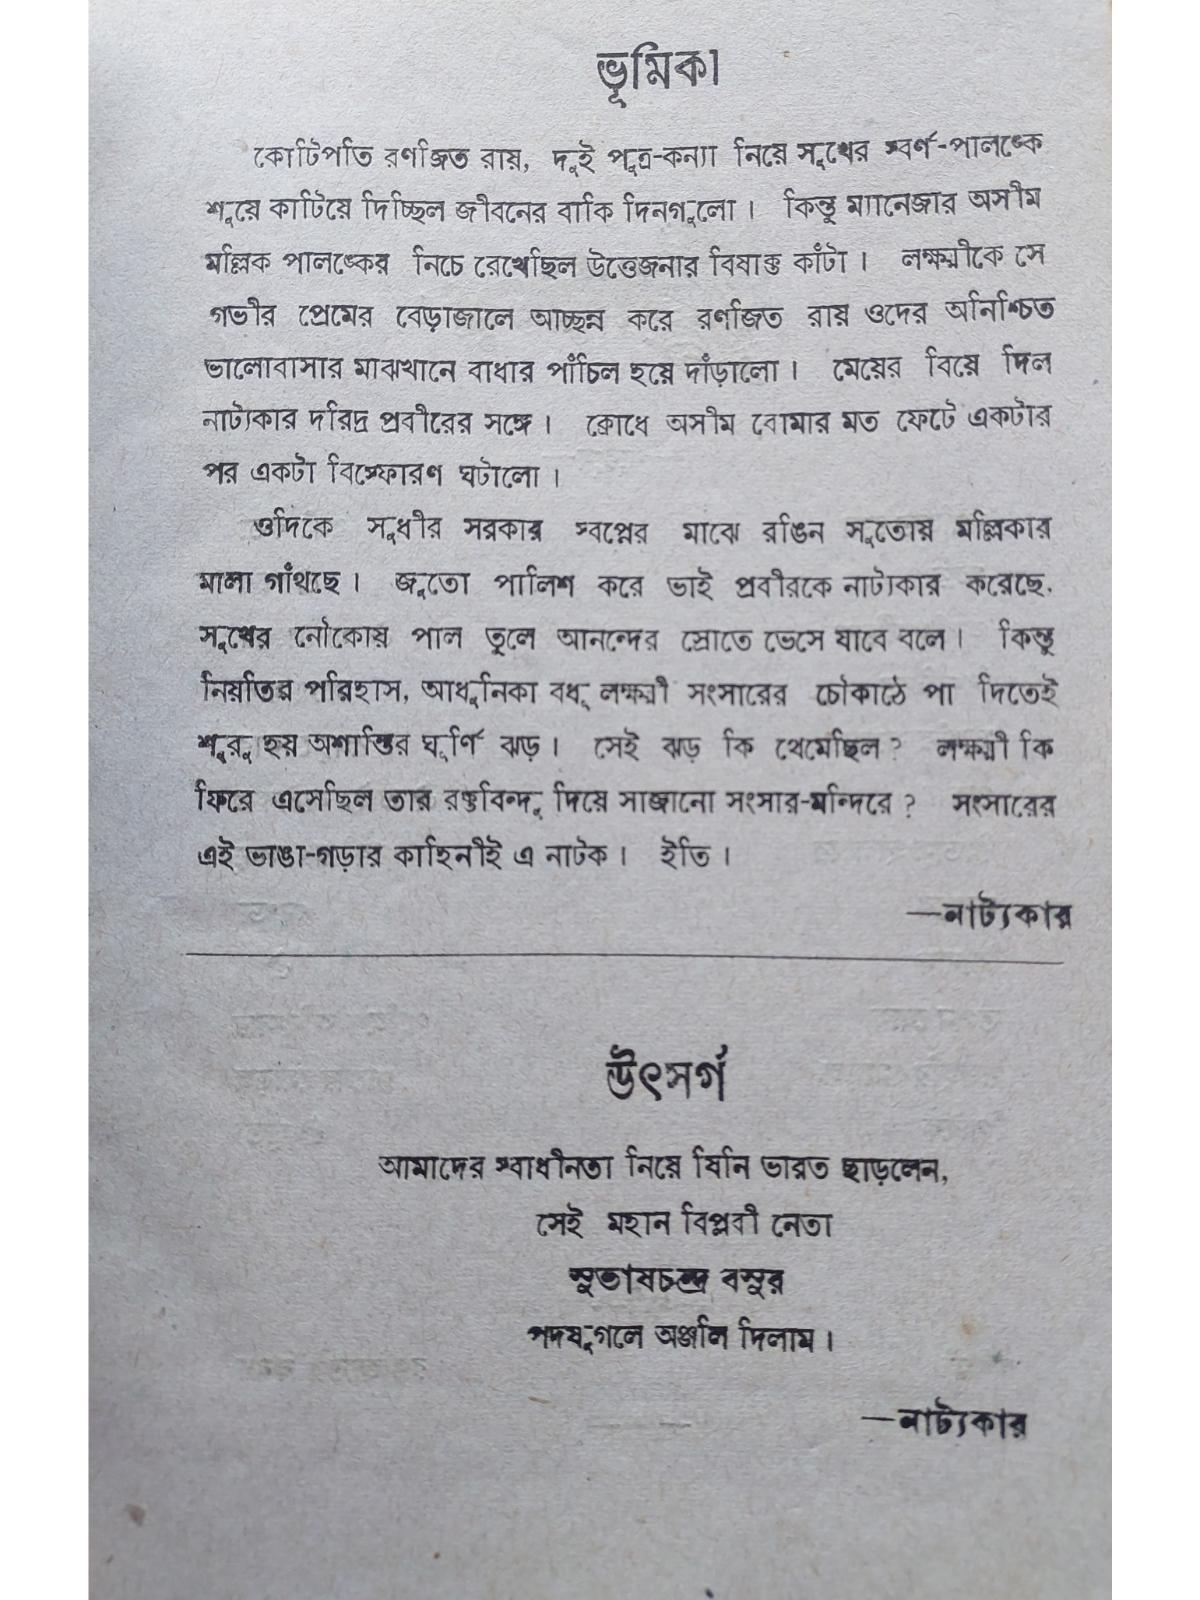 ভূমিকা
কোটিপতি রণজিত রায়, দুই পুত্র-কন্যা নিয়ে সুখের স্বর্ণ-পালঙ্কে
শুয়ে কাটিয়ে দিচ্ছিল জীবনের বাকি দিনগুলো। কিন্তু ম্যানেজার অসীম
মল্লিক পালঙ্কের নিচে রেখেছিল উত্তেজনার বিষাক্ত কাঁটা। লক্ষ্মীকে সে
গভীর প্রেমের বেড়াজালে আচ্ছন্ন করে রণজিত রায় ওদের অনিশ্চিত
ভালোবাসার মাঝখানে বাধার পাঁচিল হয়ে দাঁড়ালো। মেয়ের বিয়ে দিল
নাট্যকার দরিদ্র প্রবীরের সঙ্গে। ক্রোধে অসীম বোমার মত ফেটে একটার
পর একটা বিস্ফোরণ ঘটালো।
ওদিকে সুধীর সরকার স্বপ্নের মাঝে রঙিন সুতোয় মল্লিকার
মালা গাঁথছে। জুতো পালিশ করে ভাই প্রবীরকে নাট্যকার করেছে.
সুখের নৌকোয় পাল তুলে আনন্দের স্রোতে ভেসে যাবে বলে। কিন্তু
নিয়তির পরিহাস, আধুনিকা বধূ লক্ষ্মী সংসারের চৌকাঠে পা দিতেই
শুরু হয় অশান্তির ঘূর্ণি ঝড়। সেই ঝড় কি থেমেছিল? লক্ষ্মী কি
ফিরে এসেছিল তার রক্তবিন্দু দিয়ে সাজানো সংসার-মন্দিরে? সংসারের
এই ভাঙা-গড়ার কাহিনীই এ নাটক। ইতি।
—নাট্যকার
উৎসর্গ
আমাদের স্বাধীনতা নিয়ে যিনি ভারত ছাড়লেন,
সেই মহান বিপ্লবী নেতা
সুভাষচন্দ্র বসুর
পদযুগলে অঞ্জলি দিলাম।
—নাট্যকার